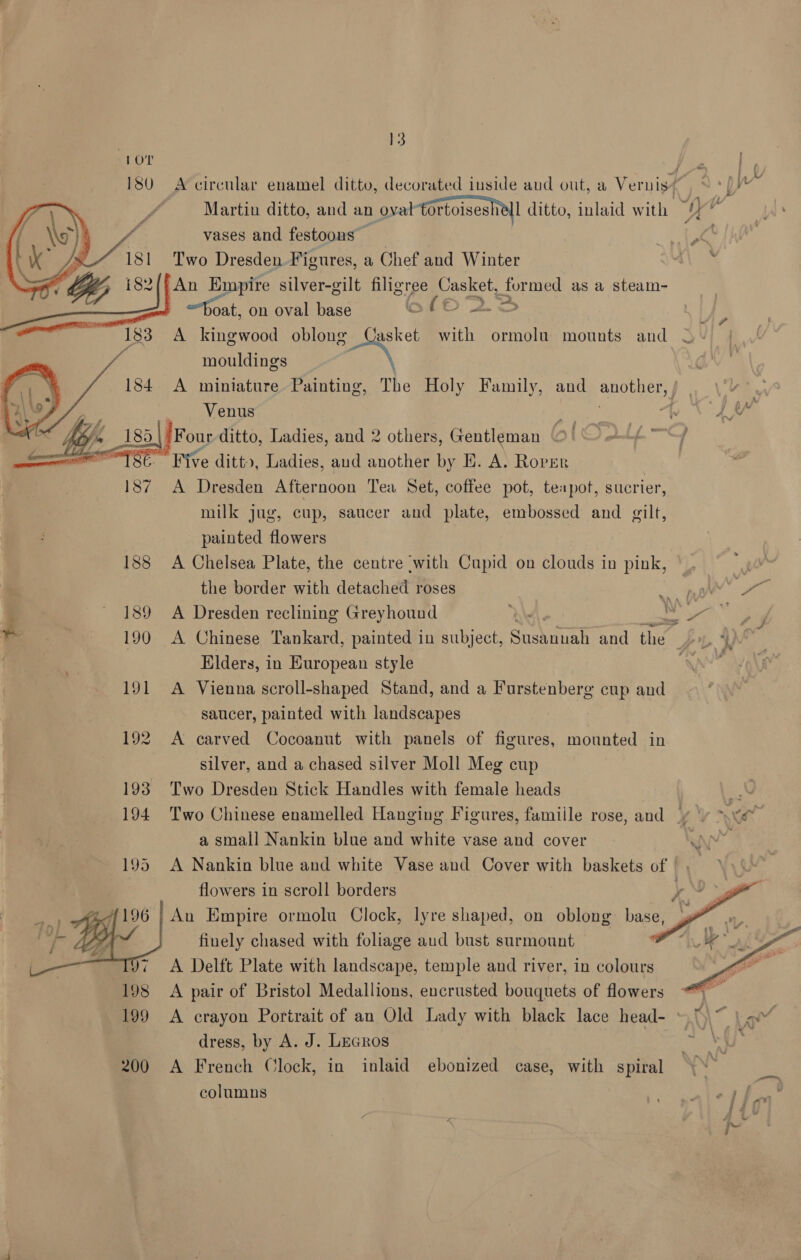 13
LOT
180 A circular enamel ditto, decorated inside and out, a Vernis
Martin ditto, and an oval tortoiseshell ditto, inlaid with
vases and festoons
181 Two Dresden Figures, a Chef and Winter
182 An Empire silver-gilt filigree Casket, formed as a steam-
boat, on oval base
183 A kingwood oblong Casket with ormolu mounts and
mouldings
184 A miniature Painting, The Holy Family, and another,
Venus
185 Four ditto, Ladies, and 2 others, Gentleman
186 Five ditto, Ladies, and another by E. A. ROPER
187 A Dresden Afternoon Tea Set, coffee pot, teapot, sucrier,
milk jug, cup, saucer and plate, embossed and gilt,
painted flowers
188 A Chelsea Plate, the centre with Cupid on clouds in pink,
the border with detached roses
189 A Dresden reclining Greyhound
190 A Chinese Tankard, painted in subject, Susannah and the
Elders, in European style
191 A Vienna scroll-shaped Stand, and a Furstenberg cup and
saucer, painted with landscapes
192 A carved Cocoanut with panels of figures, mounted in
silver, and a chased silver Moll Meg cup
193 Two Dresden Stick Handles with female heads
194 Two Chinese enamelled Hanging Figures, famiile rose, and
a small Nankin blue and white vase and cover
195 A Nankin blue and white Vase and Cover with baskets of
flowers in scroll borders
196 An Empire ormolu Clock, lyre shaped, on oblong base,
finely chased with foliage and bust surmount
197 A Delft Plate with landscape, temple and river, in colours
198 A pair of Bristol Medallions, encrusted bouquets of flowers
199 A crayon Portrait of an Old Lady with black lace head-
dress, by A. J. LEGROS
200 A French Clock, in inlaid ebonized case, with spiral
columns